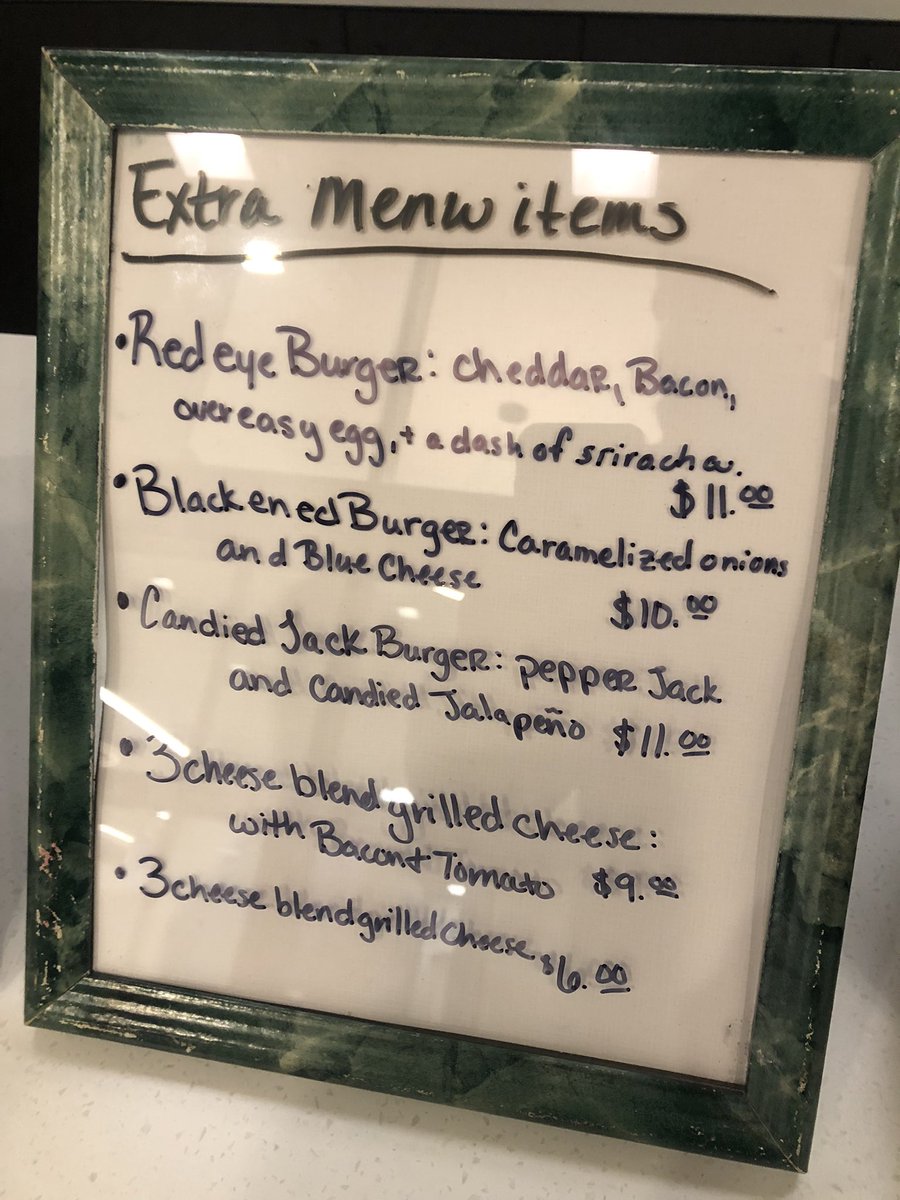 Extra Menu items
• Redeye Burger: Cheddar, Bacon,
over easy egg, + a dash of sriracha.
$11.00
• Blackened Burger: Caramelized onions
and Blue Cheese
$10.00
• Candied Jack Burger: pepper Jack
and Candied Jalapeño $11.00
• 3 cheese blend grilled cheese:
with Bacon + Tomato $9.00
• 3 cheese blend grilled Cheese $6.00